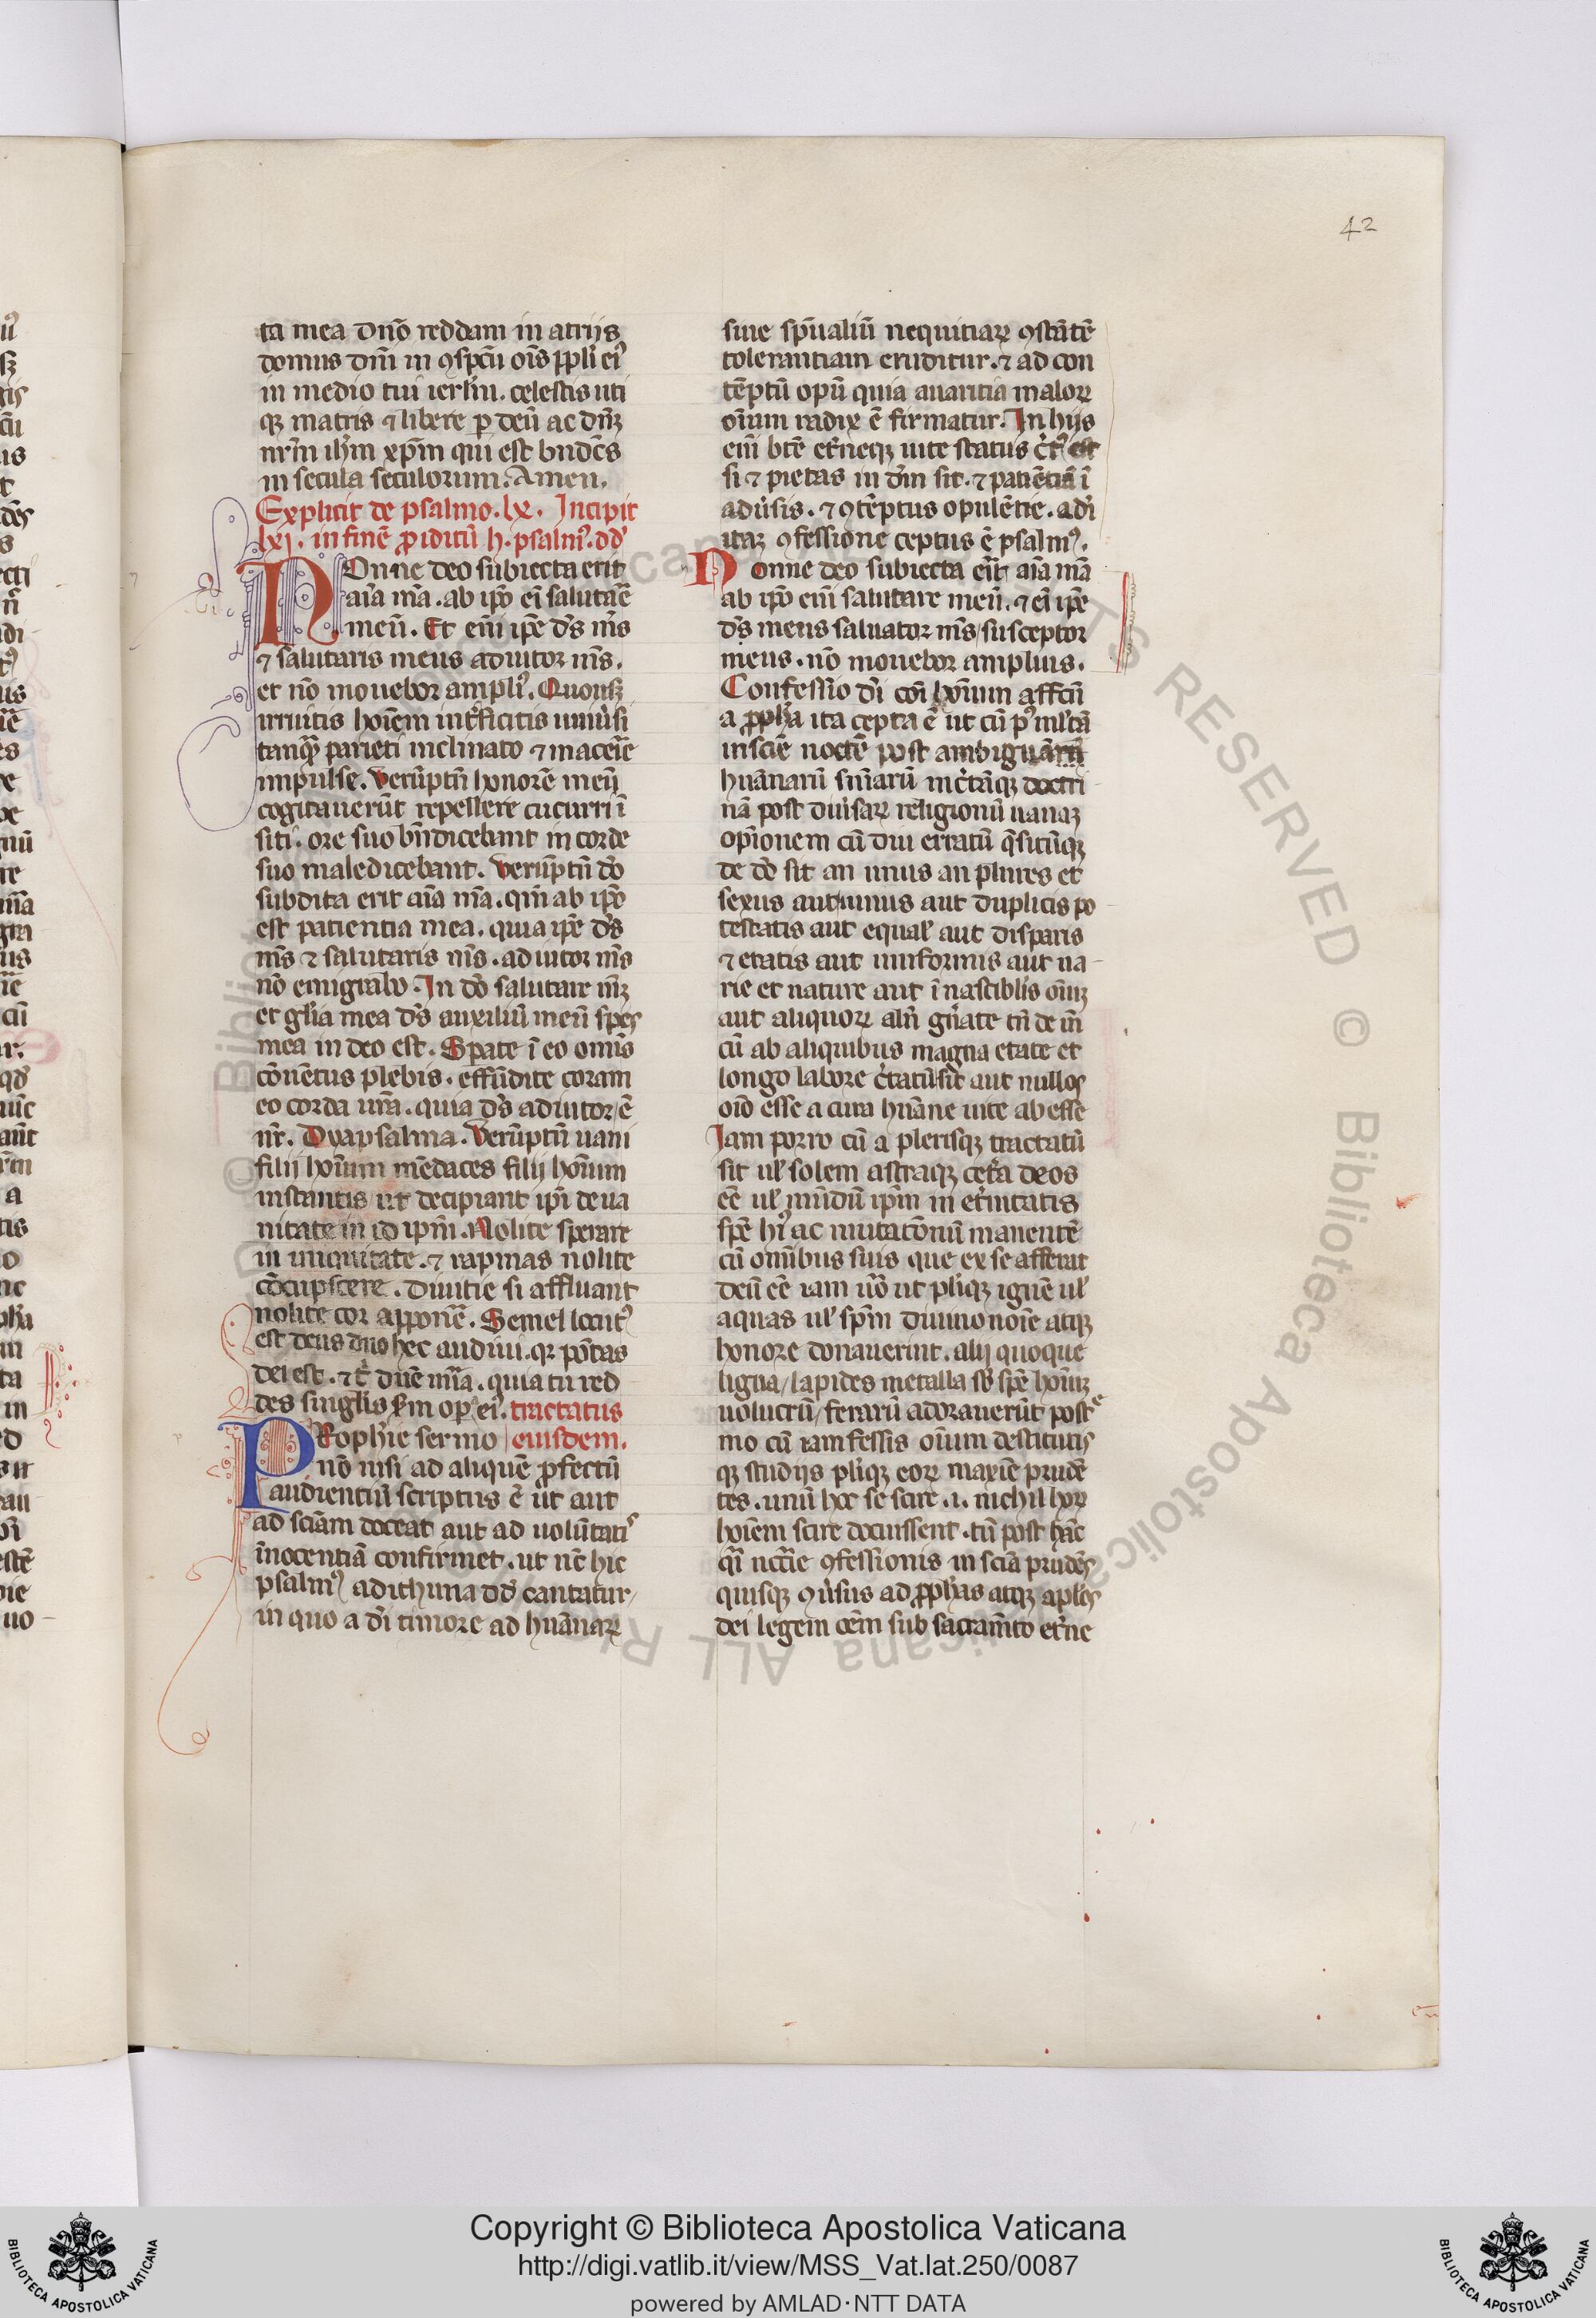 42
ta mea dnō reddam in atrijs
domus dn̄i in ꝯspc̄u oīs ppl̄i eiꝰ
in medio tui ierl̄m. celestis uti
qꝫ matris ⁊ libere p deū ac dn̄ꝫ
nr̄m ih̄m xp̄m qui est bn̄dcs̄
in secula seculorum. Amen.
Explicit de psalmo. lx. Incipit
lxj. in finē p̄ iditū h. psalmꝰ. dd̄
NOnne deo subiecta erit
aīa mā. ab ip̄o ei̅ salutar̄e
meū. Et em̄ ip̄e ds̄ ms̄
⁊ salutaris meus adiutor ms̄.
et nō mouebor ampliꝰ. Quousqꝫ
irruitis hoīem int̄ficitis uniūsi
tanqȝ parieti inclinato ⁊ macer̄ie
impulse. Verūptn̄ honorē meū
cogitauerūt repellere cucurri ī
siti. ore suo bn̄dicebant in corde
suo maledicebant. Verūptn̄ dō
subdita erit aīa mā. qm̄ ab ip̄o
est patientia mea. quia ip̄e ds̄
ms̄ ⁊ salutaris ms̄. adiutor ms̄
nō emigrabo. In dō salutare mꝫ
et gl̄ia mea ds̄ auxiliū meū spes
mea in deo est. Sperate ī eo omīs
cōuētus plebis. effūdite coram
eo corda ura̅. quia ds̄ adiutor ē
nr̄. Dyapsalma. Verūptn̄ uani
filij hoīum mēdaces filij hoīum
in stantis ut decipiant ip̄i de ua
nitate in id ip̄m. Nolite sperare
in iniquitate. ⁊ rapinas nolite
cōcupscere. diuitie si affluant
nolite cor apponer̄e. Semel locutꝰ
est deus duo hec audiui. qr pōtas
dei est. ⁊ t̄ dn̄e mīa. quia tu red
des singlis̄ scd̄m op̄ eiꝰ. tractatus
PRophīe sermo eiusdem.
nō nisi ad aliquē ꝓfectū
audientiū scriptus ē ut aut
ad sciām doceat aut ad uolūtatis
īnocentiā confirmet. ut nc̄ hic
psalmꝰ adithuna dd̄ cantatur
in quo a dī timore ad huānaꝝ
siue spūaliū nequitiaꝝ ꝯstātē
tolerantiam eruditur. ⁊ ad con
tēptū opū quia auaritia maloꝝ
oīum radix ē firmatur. In hijs
em̄ btē et̄neqꝫ uite status
si ⁊ pietas in dm̄ sit. ⁊ patiētiā ī
adūsis. ⁊ ꝯtēptus opulētie. a dī
itaqꝫ ꝯfessione ceptus ē psalmꝰ.
Nonne deo subiecta er̄it aīa mā
ab ip̄o em̄ salutare meū. ⁊ ei̅ ip̄e
ds̄ meus saluator ms̄ susceptor
meus. nō mouebor amplius.
Confessio dī coī hoīum affc̄u
a pph̄a ita cepta ē ut cū pꝰ ml̄tā
insciē noctē post ambiguārū
huānarū snīarū inc̄tāqꝫ doctri
nā post diūsaꝝ religionū uanaꝫ
opīonem cū diu erratū qs̄itūqꝫ
de dō sit an unus an plures et
sexus aut unius aut duplicis po
testatis aut equal̄ aut disparis
⁊ etatis aut uniformis aut ua
rie et nature aut īnascibl̄is oīuꝫ
aut aliquoꝝ aln̄ gn̄ate tn̄ de in̄
cū ab aliquibus magna etate et
longo labore c̄tatū sit aut nullos
oīo esse a cura huāne uite abesse
Iam porro cū a plerisqꝫ tractatū
sit ul̄ solem astraqꝫ cet̄a deos
eē ul̄ mūdū ip̄m in et̄nitatis
spē hī ac mutatōnū manentē
cū omībus suis que ex se afferat
deū eē iam uō ut pliqꝫ ignē ul̄
aquas ul̄ sp̄m diuino noīe atqꝫ
honore donauerint. alij quoque
ligna lapides metalla sb̄ spē hoīuꝫ
uolucrū ferarū adorauerūt postre
mo cū iam fessis oīum destitutis
qꝫ studijs pliqꝫ eoꝝ maxīe prudē
tes. unū hoc se scire .i. nichil hoꝝ
hoīem scire docuissent. tū post hāc
qī nccār̄ie ꝯfessīonis insciā prudēs
quisqꝫ ꝯūsus ad pph̄as atqꝫ apl̄os
dei legem oēm sub sacramt̄o et̄ne
Copyright © Biblioteca Apostolica Vaticana
http://digi.vatlib.it/view/MSS_Vat.lat.250/0087
powered by AMLAD·NTT DATA
BIBLIOTECA APOSTOLICA VATICANA
BIBLIOTECA APOSTOLICA VATICANA